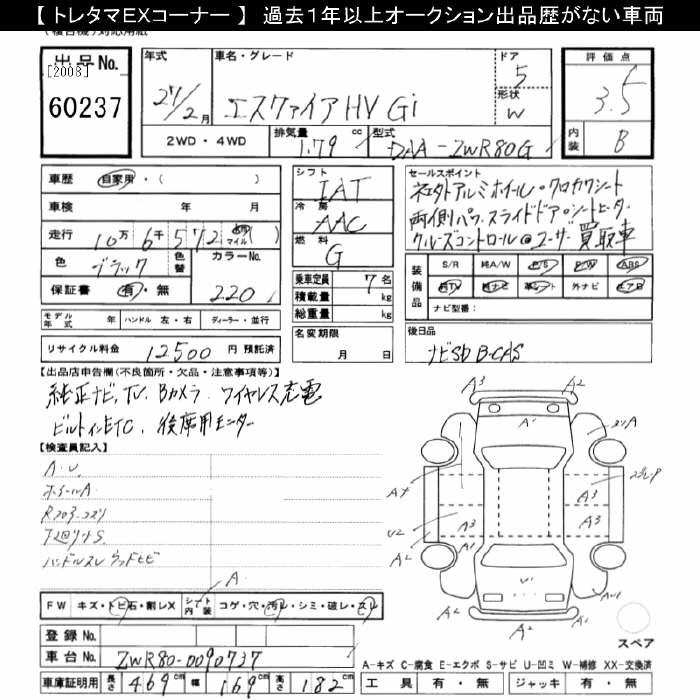 【トレタマEXコーナー】 過去1年以上オークション出品歴がない車両
出品No.
[2008]
60237
年式
27/2月
車名・グレード
エスクァイア HV Gi
ドア
5
形状
W
評価点
3.5
内装
B
2WD・4WD
排気量 1.79 cc
型式 DAA-ZWR80G
車歴 ・自家用・( )
車検 年 月
走行 10万 6千 572 km マイル( )
色 ブラック 色替
カラーNo. 220
保証書 有・無
シフト
IAT
冷房
AAC
燃料
G
乗車定員 7名
積載量 kg
総重量 kg
名変期限
月 日
セールスポイント
社外アルミホイール・クロカワシート
両側パワスライドドア・シートヒーター
クルーズコントロール@ユーザー買取車
装備品
S/R 純A/W P/S P/W ABS
純TV 純ナビ 革シート 外ナビ エアB
ナビ型番:
後日品
ナビSD B-CAS
モデル年式 年 ハンドル 左・右 ディーラー・並行
リサイクル料金 12500 円 預託済
【出品店申告欄(不良箇所・欠品・注意事項等)】
純正ナビ、TV、Bカメラ、ワイヤレス充電
ビルトインETC、後席用モニター
【検査員記入】
A・U
ホイールA
下廻りサS
ハンドルスレ ウッドヒビ
A
FW キズ・トビ石・割レX シート内装 コゲ・穴・汚レ・シミ・破レ・スレ
登録No.
車台No. ZWR80-0090737
車庫証明用 長さ 469cm 幅 169cm 高さ 182cm
A3 A2
A1
A3 A3
A3 A3
A2 A1 A1
U1
A2 A2
スペア
A-キズ C-腐食 E-エクボ S-サビ U-凹ミ W-補修 XX-交換済
工具 有・無 ジャッキ 有・無